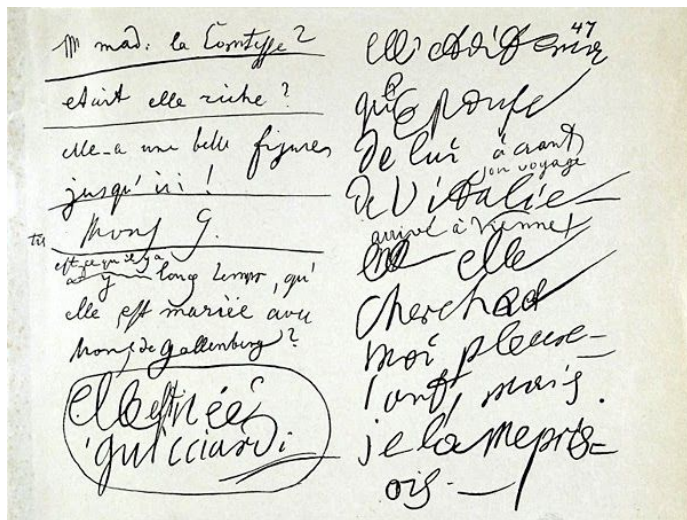 mad: la Comtesse?
etait elle riche?
elle-a une belle figures
jusqu'ici!
Mons G.
est ce qu'il y a
long temps, qu'
elle est mariée avec
Mons de Gallenberg?
elle est née
guicciardi
47
elle étoit
qu l'epouse
de lui avant
son voyage
de l'Italie –
arrivé à Vienne
elle
cherchoit
moi pleure–
ant, mais.
je la mepris=
ois. —